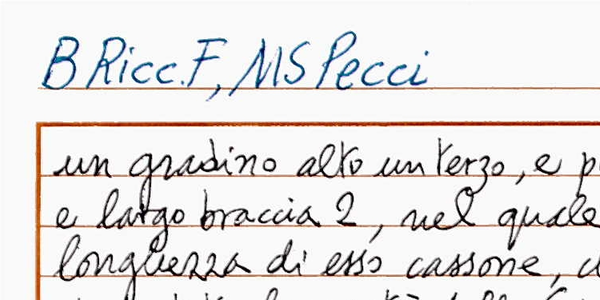 B Ricc. F, MS Pecci
un gradino alto un terzo, e p
e largo braccia 2, nel quale
longhezza di esso cassone, d